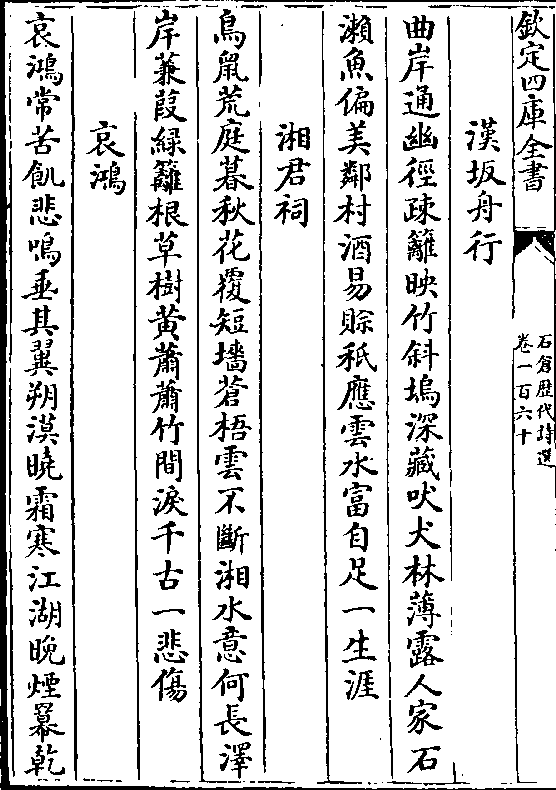 欽定四庫全書
石倉歴代詩選
卷一百六十
漢坂舟行
曲岸通幽徑疎籬映竹斜塢深藏吠犬林薄露人家石
瀨魚偏美鄰村酒易賒秖應雲水富自足一生涯
湘君祠
鳥鼠荒庭暮秋花覆短墻蒼梧雲不斷湘水意何長澤
岸蒹葭綠籬根草樹黄蕭蕭竹間淚千古一悲傷
哀鴻
哀鴻常苦飢悲鳴垂其翼朔漠曉霜寒江湖晚煙羃乾